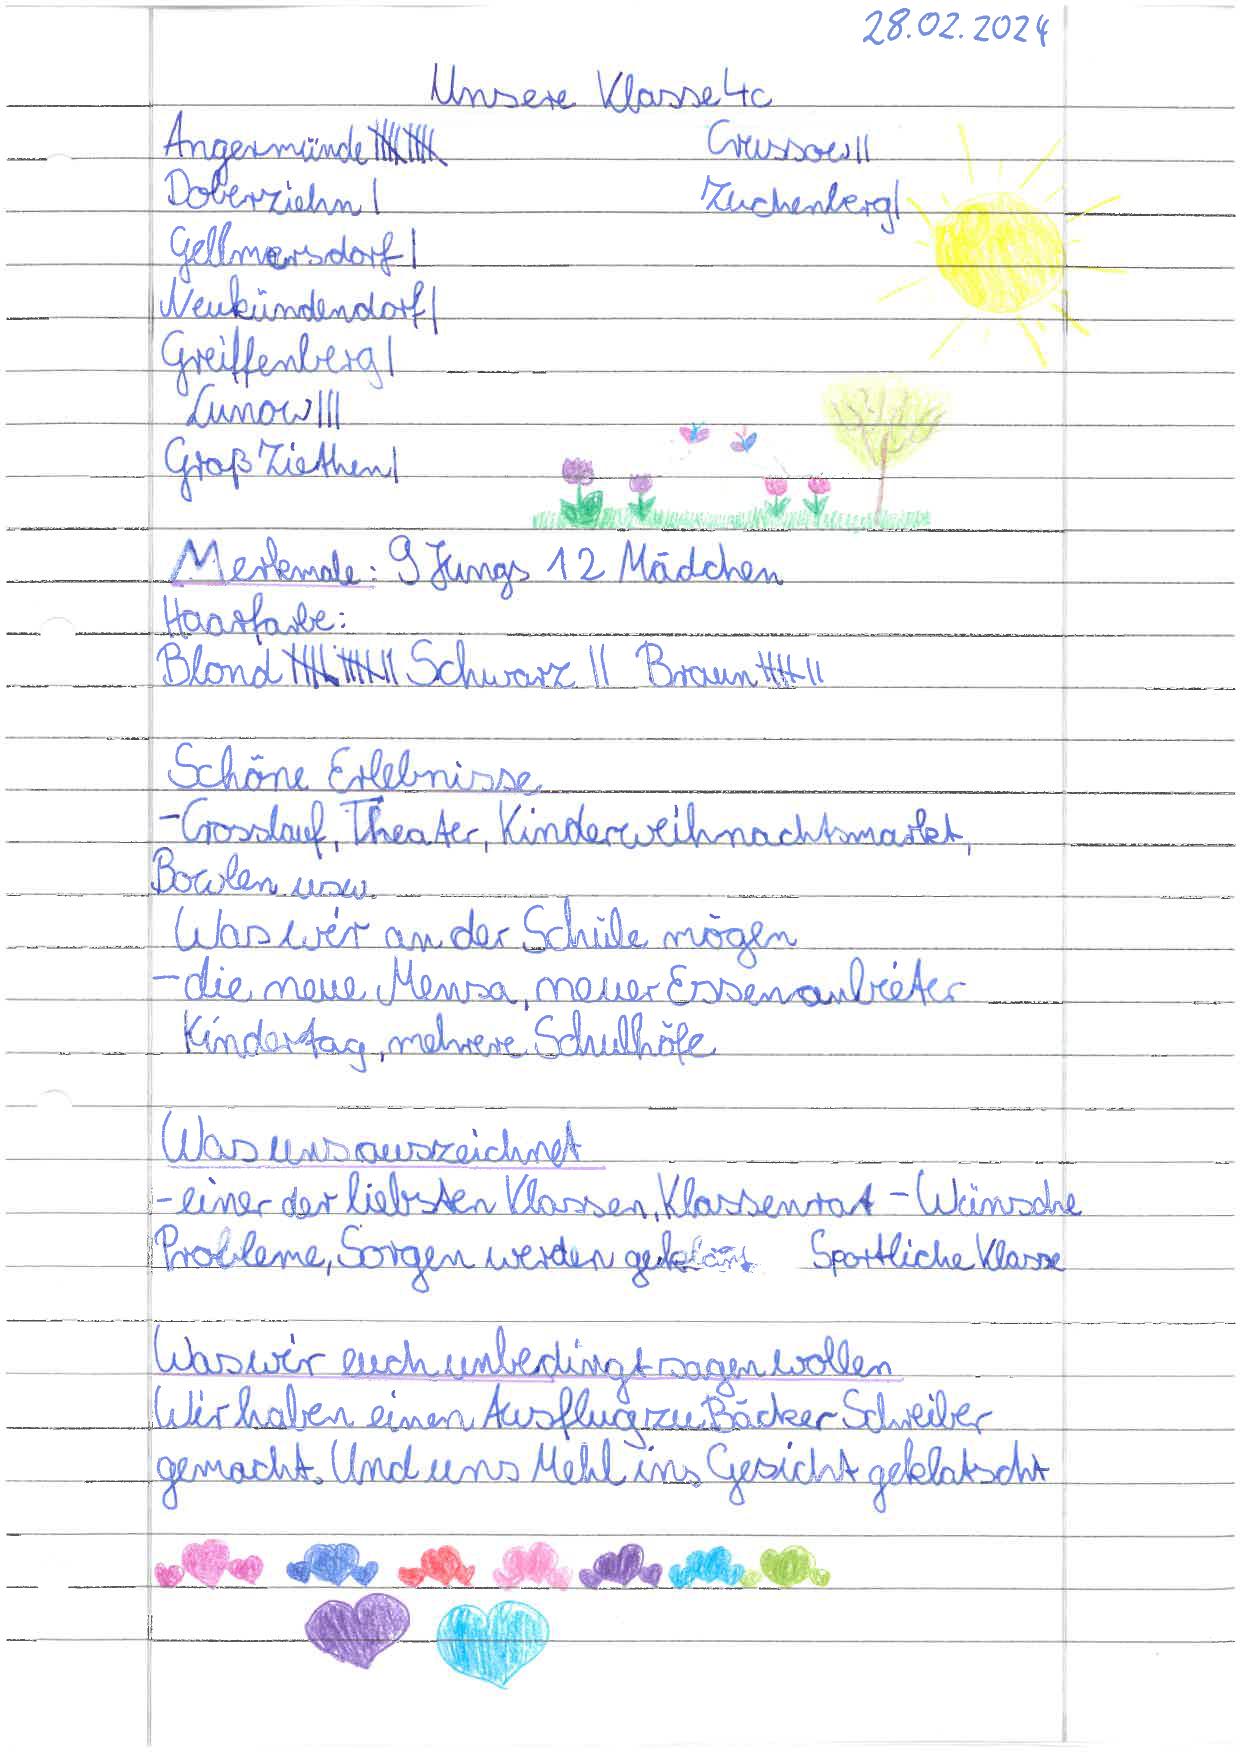 28.02.2024
Unsere Klasse 4c
Angermünde |||| |||| Crussow ||
Doberziehn | Zuchenberg |
Gellmersdorf |
Neukündendorf |
Greiffenberg |
Lunow |||
Groß Ziethen |
Merkmale: 9 Jungs 12 Mädchen
Haarfarbe:
Blond |||| |||| || Schwarz || Braun |||| ||
Schöne Erlebnisse
- Crosslauf, Theater, Kinderweihnachtsmarkt,
Bowlen usw.
Was wir an der Schule mögen
- die neue Mensa, neuer Essenanbieter
Kindertag, mehrere Schulhöfe
Was uns auszeichnet
- einer der liebsten Klassen, Klassenrat - Wünsche
Probleme, Sorgen werden geklärt Sportliche Klasse
Was wir euch unbedingt sagen wollen
Wir haben einen Ausflug zu Bäcker Schreiber
gemacht. Und uns Mehl ins Gesicht geklatscht